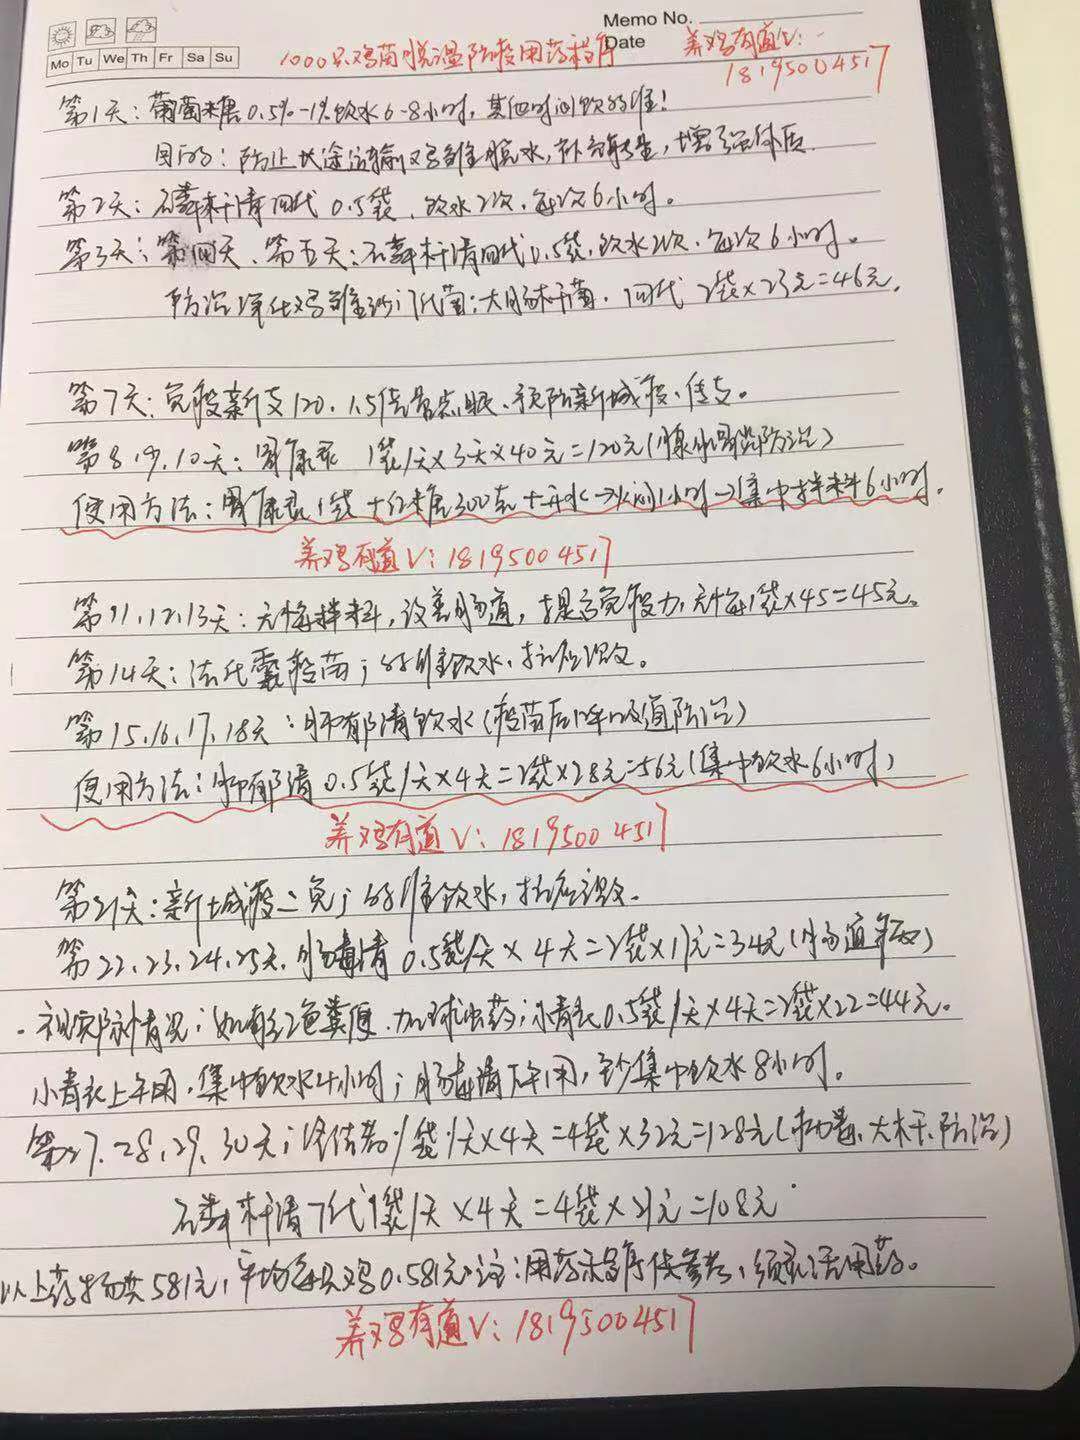 Memo No.
Date
Mo Tu We Th Fr Sa Su
1000只鸡苗脱温防疫用药程序
养鸡有道V:
18195004517
第1天:葡萄糖0.5%-1%饮水6-8小时,其他时间饮多维!
目的:防止长途运输鸡雏脱水,补充能量,增强体质.
第2天:杆清四代 0.5袋、饮水2次,每次6小时。
第3天:第四天、第五天:杆清四代0.5袋,饮水2次,每次6小时。
防治净化鸡雏沙门氏菌;大肠杆菌.四代 2袋×23元=46元.
第7天:免疫新支120、1.5倍量点眼、预防新城疫、传支。
第8,9,10天:胃康灵 1袋/天×3天×40元=120元(腺肌胃炎防治)
使用方法:胃康灵1袋+红糖300克+开水→水闷1小时→集中拌料6小时.
养鸡有道V:18195004517
第11,12,13天:拌料,改善肠道,提高免疫力,每1袋×45=45元。
第14天:法氏囊疫苗;多维饮水,抗应激。
第15,16,17,18天:清饮水(疫苗后呼吸道防治)
使用方法:清0.5袋/天×4天=2袋×28元=56元(集中饮水6小时)
养鸡有道V:18195004517
第21天:新城疫二免;多维饮水,抗应激。
第22、23、24、25天、肠毒清 0.5袋/天×4天=2袋×17元=34元(肠道)
.视实际情况;如有红色粪便.加球虫药;小青衣0.5袋/天×4天=2袋×22=44元。
小青衣上午用,集中饮水4小时;肠毒清下午用,集中饮水8小时。
第27、28、29、30天;1袋/天×4天=4袋×32元=128元(大杆、防治)
杆清7代1袋/天×4天=4袋×27元=108元
以上药物共581元,平均每只鸡0.581元。注:用药程序供参考,须灵活用药。
养鸡有道V:18195004517